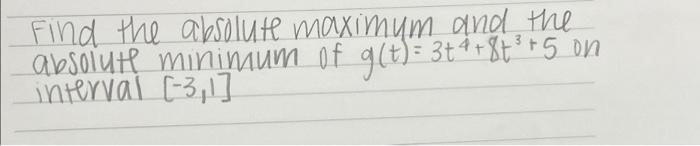 Find the absolute maximum and the
absolute minimum of g(t) = 3t⁴+8t³+5 on
interval [-3,1]